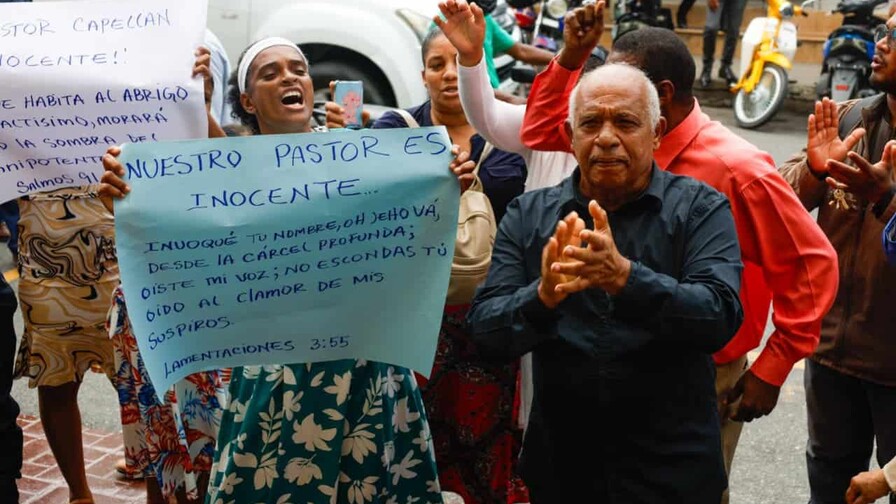 STOR CAPELLAN
NOCENTE!!
E HABITA AL ABRIGO
ALTISIMO, MORARÁ
LA SOMBRA DEL
NIPOTENTE
Salmos 91
NUESTRO PASTOR ES
INOCENTE...
INVOQUÉ TU NOMBRE, OH JEHOVÁ,
DESDE LA CÁRCEL PROFUNDA;
OISTE MI VOZ; NO ESCONDAS TÚ
OIDO AL CLAMOR DE MIS
SUSPIROS.
LAMENTACIONES 3:55